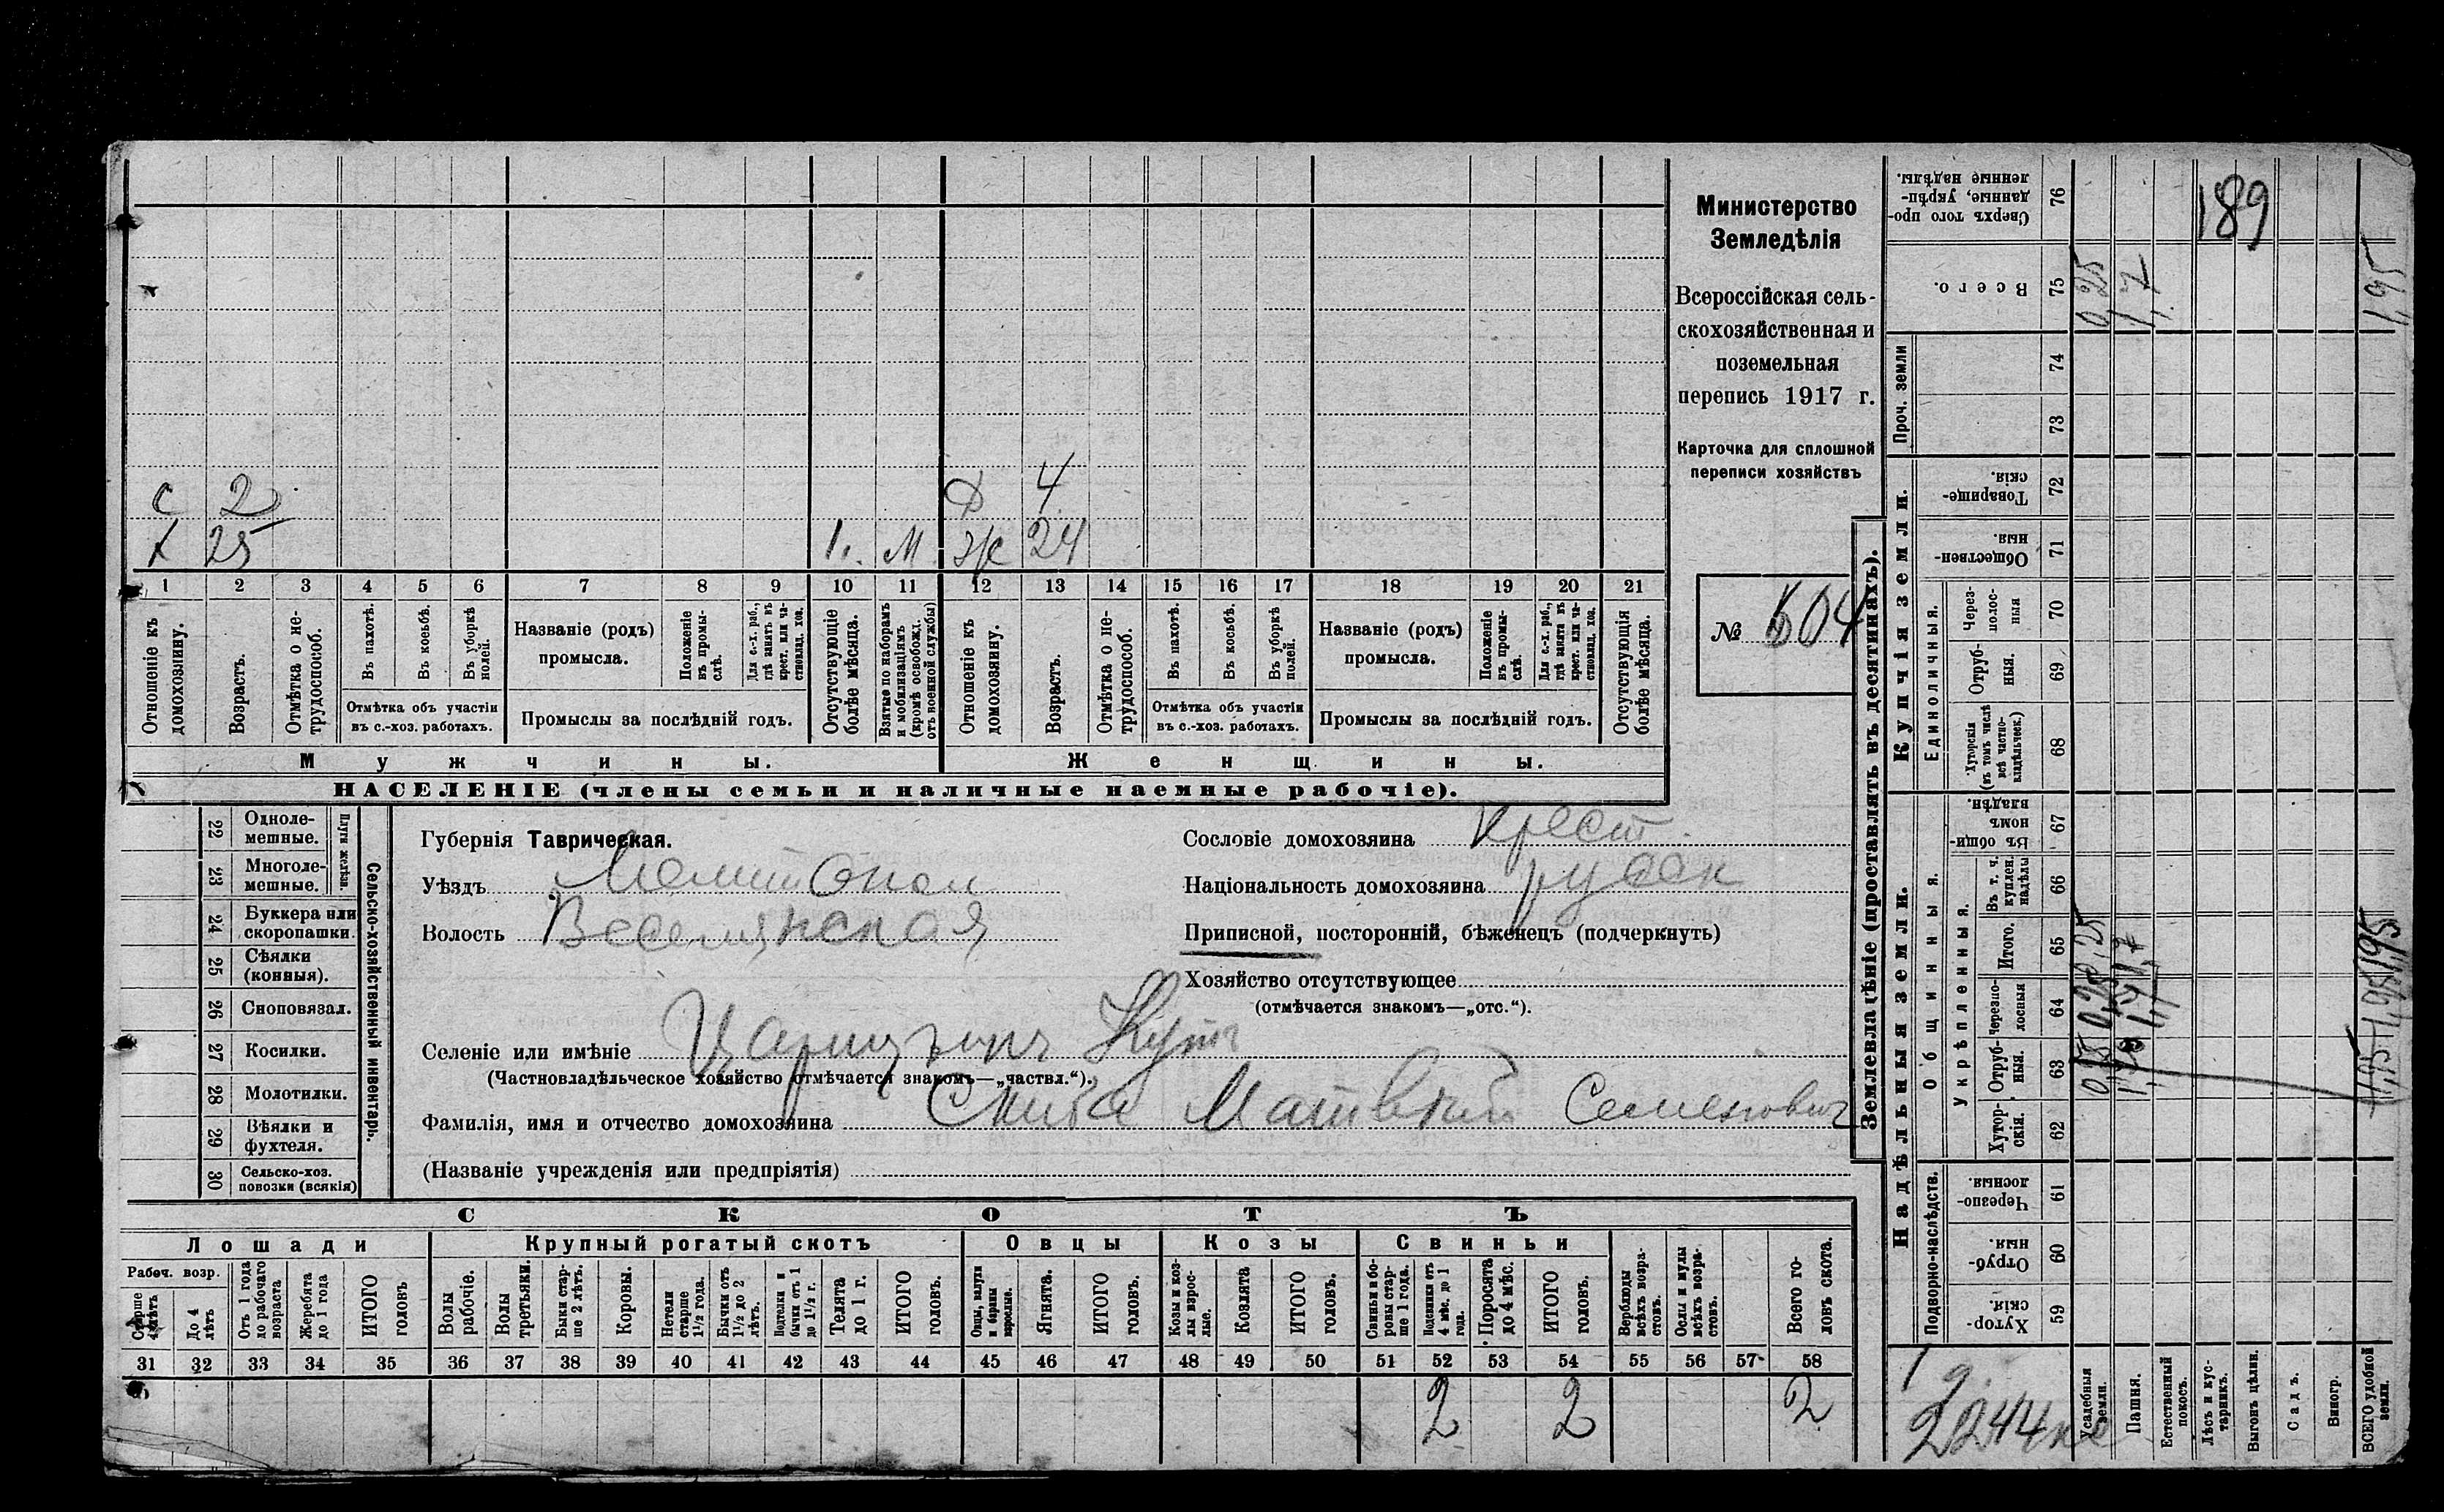 Министерство
Земледѣлія
Всероссійская сель-
скохозяйственная и
поземельная
перепись 1917 г.
Карточка для сплошной
переписи хозяйствъ
№ 604
С 2 Д 4
Х 25 1. М Ж 24
1 2 3 4 5 6 7 8 9 10 11 12 13 14 15 16 17 18 19 20 21
Отношеніе къ домохозяину.
Возрастъ.
Отмѣтка о не-трудоспособ.
Въ пахотѣ.
Въ косьбѣ.
Въ уборкѣ полей.
Отмѣтка объ участіи
въ с.-хоз. работахъ.
Названіе (родъ)
промысла.
Положеніе въ промы-слѣ.
Для с.-х. раб., гдѣ занятъ въ крест. или ча-стновлад. хоз.
Промыслы за послѣдній годъ.
Отсутствующіе болѣе мѣсяца.
Взятые по наборамъ и мобилизаціямъ (кромѣ освобожд. отъ военной службы)
Отношеніе къ домохозяину.
Возрастъ.
Отмѣтка о не-трудоспособ.
Въ пахотѣ.
Въ косьбѣ.
Въ уборкѣ полей.
Отмѣтка объ участіи
въ с.-хоз. работахъ.
Названіе (родъ)
промысла.
Положеніе въ промы-слѣ.
Для с.-х. раб., гдѣ занята въ крест. или ча-стновлад. хоз.
Промыслы за послѣдній годъ.
Отсутствующія болѣе мѣсяца.
Мужчины. Женщины.
НАСЕЛЕНІЕ (члены семьи и наличные наемные рабочіе).
22 Однолемешные.
23 Многолемешные.
Плуги желѣзн.
24 Буккера или скоропашки.
25 Сѣялки (конныя).
26 Сноповязал.
27 Косилки.
28 Молотилки.
29 Вѣялки и фухтеля.
30 Сельско-хоз. повозки (всякія)
Сельско-хозяйственный инвентарь.
Губернія Таврическая.
Уѣздъ Мелитопол
Волость Веселянская
Сословіе домохозяина крест.
Національность домохозяина русск
Приписной, посторонній, бѣженецъ (подчеркнуть)
Хозяйство отсутствующее
(отмѣчается знакомъ—„отс.“).
Селеніе или имѣніе Царицынъ Кутъ
(Частновладѣльческое хозяйство отмѣчается знакомъ—„частвл.“).
Фамилія, имя и отчество домохозяина Матвѣй Семенович
(Названіе учрежденія или предпріятія)
СКОТЪ
Лошади Крупный рогатый скотъ Овцы Козы Свиньи
Рабоч. возр.
Старше 4 лѣтъ
До 4 лѣтъ
Отъ 1 года до рабочаго возраста
Жеребята до 1 года
ИТОГО головъ
Волы рабочіе.
Волы третьяки.
Быки стар-ше 2 лѣтъ.
Коровы.
Нетели старше 1½ года.
Бычки отъ 1½ до 2 лѣтъ.
Подтелки и бычки отъ 1 до 1½ г.
Телята до 1 г.
ИТОГО головъ.
Овцы, валухи и бараны взрослые.
Ягнята.
ИТОГО головъ.
Козы и коз-лы взрос-лые.
Козлята
ИТОГО головъ.
Свиньи и бо-ровы стар-ше 1 года.
Подсвинки отъ 4 мѣс. до 1 года.
Поросята до 4 мѣс.
ИТОГО головъ.
Верблюды всѣхъ возра-стовъ.
Ослы и мулы всѣхъ возра-стовъ.
Всего го-ловъ скота.
31 32 33 34 35 36 37 38 39 40 41 42 43 44 45 46 47 48 49 50 51 52 53 54 55 56 57 58
2 2 2
Землевладѣніе (проставлять въ десятинахъ).
Надѣльныя земли. Купчія земли. Проч. земли
Подворно-наслѣдств.
Общинныя.
Укрѣпленныя.
Единоличныя.
Хутор-скія. 59
Отруб-ныя. 60
Черезпо-лосныя. 61
Хутор-скія. 62
Отруб-ныя. 63
Черезпо-лосныя 64
Итого. 65
Въ т. ч. куплен. надѣлы 66
Въ общи-номъ владѣн. 67
Хуторскія (въ томъ числѣ всѣ частно-владѣльческ.) 68
Отруб-ныя. 69
Через-полос-ныя 70
Обществен-ныя. 71
Товарище-скія. 72
73
74
Всего. 75
Сверхъ того про-данные, укрѣп-ленные надѣлы. 76
189
Усадебныя земли. 0,25 0,25
Пашня. 1,7 1,7
Естественный покосъ.
Лѣсъ и кус-тарникъ.
Выгонъ цѣлин.
Садъ.
Виногр.
ВСЕГО удобной земли. 1,95 1,95 1,95